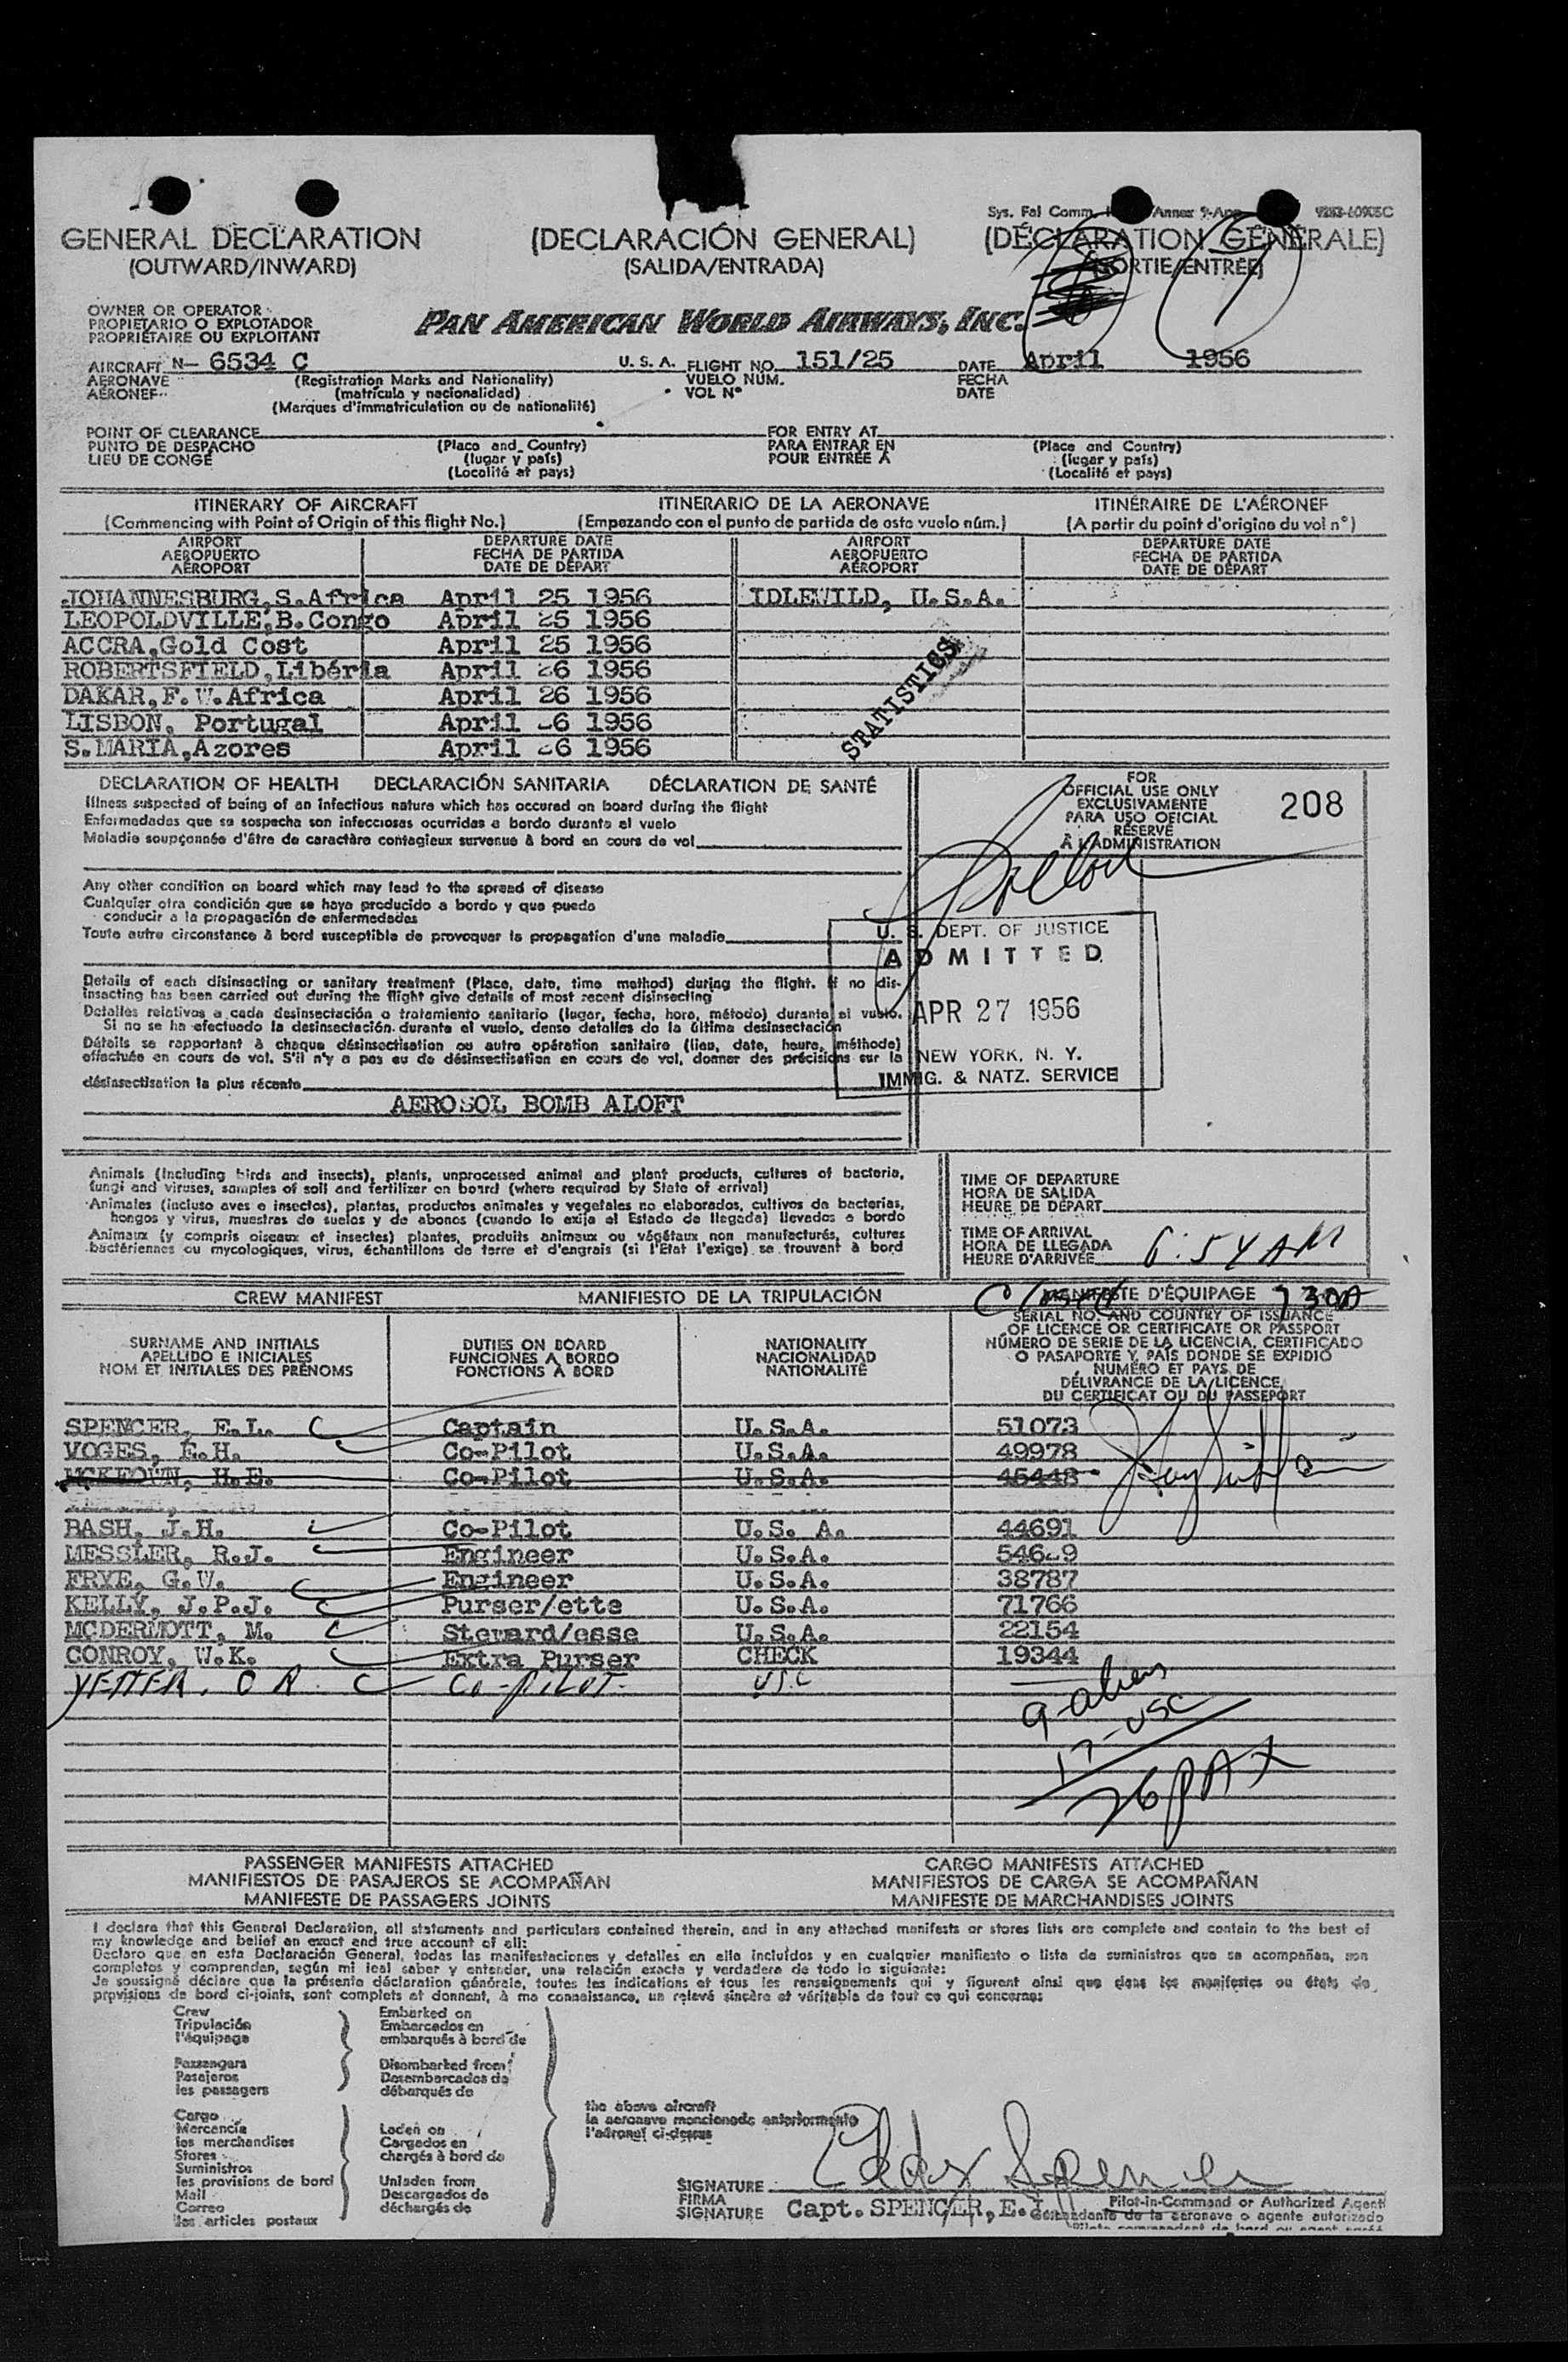 Sys. Fal Comm. Annex 9-App
GENERAL DECLARATION (DECLARACIÓN GENERAL) (DÉCLARATION GÉNÉRALE)
(OUTWARD/INWARD) (SALIDA/ENTRADA) (SORTIE/ENTRÉE)
OWNER OR OPERATOR
PROPIETARIO O EXPLOTADOR
PROPRIÉTAIRE OU EXPLOITANT
PAN AMERICAN WORLD AIRWAYS, INC.
AIRCRAFT N- 6534 C U. S. A. FLIGHT NO. 151/25 DATE April 1956
AERONAVE (Registration Marks and Nationality) VUELO NÚM. FECHA
AÉRONEF (matrícula y nacionalidad) VOL N° DATE
(Marques d'immatriculation ou de nationalité)
POINT OF CLEARANCE FOR ENTRY AT
PUNTO DE DESPACHO (Place and Country) PARA ENTRAR EN (Place and Country)
LIEU DE CONGÉ (lugar y país) POUR ENTRÉE À (lugar y país)
(Localité et pays) (Localité et pays)
ITINERARY OF AIRCRAFT ITINERARIO DE LA AERONAVE ITINÉRAIRE DE L'AÉRONEF
(Commencing with Point of Origin of this flight No.) (Empezando con el punto de partida de este vuelo núm.) (A partir du point d'origine du vol n°)
AIRPORT DEPARTURE DATE AIRPORT DEPARTURE DATE
AEROPUERTO FECHA DE PARTIDA AEROPUERTO FECHA DE PARTIDA
AÉROPORT DATE DE DÉPART AÉROPORT DATE DE DÉPART
JOHANNESBURG,S.Africa April 25 1956 IDLEWILD, U.S.A.
LEOPOLDVILLE,B.Congo April 25 1956
ACCRA,Gold Cost April 25 1956
ROBERTSFIELD,Libéria April 26 1956
DAKAR,F.W.Africa April 26 1956
LISBON, Portugal April 6 1956
S.MARIA,Azores April 26 1956
STATISTICS
DECLARATION OF HEALTH DECLARACIÓN SANITARIA DÉCLARATION DE SANTÉ
Illness suspected of being of an infectious nature which has occured on board during the flight
Enfermedades que se sospecha son infecciosas ocurridas a bordo durante el vuelo
Maladie soupçonnée d'être de caractère contagieux survenue à bord en cours de vol
FOR
OFFICIAL USE ONLY
EXCLUSIVAMENTE
PARA USO OFICIAL
RÉSERVÉ
À L'ADMINISTRATION
208
Any other condition on board which may lead to the spread of disease
Cualquier otra condición que se haya producido a bordo y que pueda
conducir a la propagación de enfermedades
Toute autre circonstance à bord susceptible de provoquer la propagation d'une maladie
U. S. DEPT. OF JUSTICE
ADMITTED
APR 27 1956
NEW YORK, N. Y.
IMMIG. & NATZ. SERVICE
Details of each disinsecting or sanitary treatment (Place, date, time method) during the flight. If no dis-
insecting has been carried out during the flight give details of most recent disinsecting
Detalles relativos a cada desinsectación o tratamiento sanitario (lugar, fecha, hora, método) durante el vuelo.
Si no se ha efectuado la desinsectación durante el vuelo, dense detalles de la última desinsectación
Détails se rapportant à chaque désinsectisation ou autre opération sanitaire (lieu, date, heure, méthode)
effectuée en cours de vol. S'il n'y a pas eu de désinsectisation en cours de vol, donner des précisions sur la
désinsectisation la plus récente
AEROSOL BOMB ALOFT
Animals (including birds and insects), plants, unprocessed animal and plant products, cultures of bacteria,
fungi and viruses, samples of soil and fertilizer on board (where required by State of arrival)
Animales (incluso aves e insectos), plantas, productos animales y vegetales no elaborados, cultivos de bacterias,
hongos y virus, muestras de suelos y de abonos (cuando lo exija el Estado de llegada) llevados a bordo
Animaux (y compris oiseaux et insectes) plantes, produits animaux ou végétaux non manufacturés, cultures
bactériennes ou mycologiques, virus, échantillons de terre et d'engrais (si l'Etat l'exige) se trouvant à bord
TIME OF DEPARTURE
HORA DE SALIDA
HEURE DE DÉPART
TIME OF ARRIVAL
HORA DE LLEGADA
HEURE D'ARRIVÉE 6:54 AM
CREW MANIFEST MANIFIESTO DE LA TRIPULACIÓN MANIFESTE D'ÉQUIPAGE
Closed 730A
SURNAME AND INITIALS DUTIES ON BOARD NATIONALITY
APELLIDO E INICIALES FUNCIONES A BORDO NACIONALIDAD
NOM ET INITIALES DES PRÉNOMS FONCTIONS À BORD NATIONALITÉ
SERIAL NO. AND COUNTRY OF ISSUANCE
OF LICENCE OR CERTIFICATE OR PASSPORT
NÚMERO DE SERIE DE LA LICENCIA, CERTIFICADO
O PASAPORTE Y PAÍS DONDE SE EXPIDIÓ
NUMÉRO ET PAYS DE
DÉLIVRANCE DE LA LICENCE
DU CERTIFICAT OU DU PASSEPORT
SPENCER, E.L. Captain U.S.A. 51073
VOGES, E.H. Co-Pilot U.S.A. 49978
MCKEOWN, H.E. Co-Pilot U.S.A. 45448
BASH, J.H. Co-Pilot U.S. A. 44691
MESSLER, R.J. Engineer U.S.A.
FRYE, G.W. Engineer U.S.A. 38787
KELLY, J.P.J. Purser/ette U.S.A. 71766
MCDERMOTT, M. Steward/esse U.S.A. 22154
CONROY, W.K. Extra Purser CHECK 19344
Co-pilot USC
9-aliens
17-USC
26 PAX
PASSENGER MANIFESTS ATTACHED CARGO MANIFESTS ATTACHED
MANIFIESTOS DE PASAJEROS SE ACOMPAÑAN MANIFIESTOS DE CARGA SE ACOMPAÑAN
MANIFESTE DE PASSAGERS JOINTS MANIFESTE DE MARCHANDISES JOINTS
I declare that this General Declaration, all statements and particulars contained therein, and in any attached manifests or stores lists are complete and contain to the best of
my knowledge and belief an exact and true account of all:
Declaro que en esta Declaración General, todas las manifestaciones y detalles en ella incluídos y en cualquier manifiesto o lista de suministros que se acompañan, son
completos y comprenden, según mi leal saber y entender, una relación exacta y verdadera de todo lo siguiente:
Je soussigné déclare que la présente déclaration générale, toutes les indications et tous les renseignements qui y figurent ainsi que dans les manifestes ou états de
provisions de bord ci-joints, sont complets et donnent, à ma connaissance, un relevé sincère et véritable de tout ce qui concerne:
Crew Embarked on
Tripulación Embarcados en
l'équipage embarqués à bord de
Passengers Disembarked from
Pasajeros Desembarcados de
les passagers débarqués de
Cargo
Mercancía Laden on
les merchandises Cargados en
Stores chargés à bord de
Suministros
les provisions de bord Unladen from
Mail Descargados de
Correo déchargés de
les articles postaux
the above aircraft
la aeronave mencionada anteriormente
l'aéronef ci-dessus
SIGNATURE
FIRMA
SIGNATURE Capt. SPENCER, E.L.
Pilot-in-Command or Authorized Agent
Comandante de la aeronave o agente autorizado
Pilote commandant de bord ou agent agréé